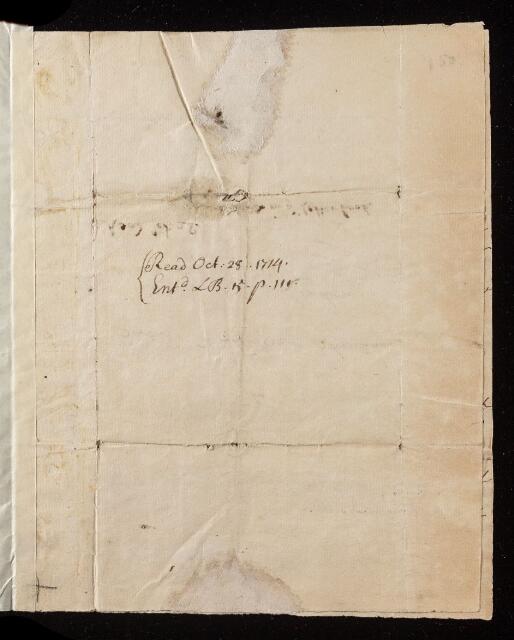 Read Oct: 28. 1714.
Ent.d LB. 15. p. 111.